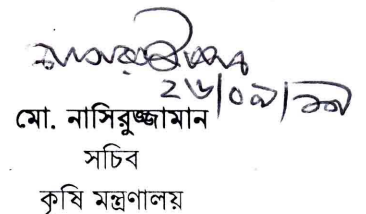 ২৬/০৯/১৯
মো. নাসিরুজ্জামান
সচিব
কৃষি মন্ত্রণালয়